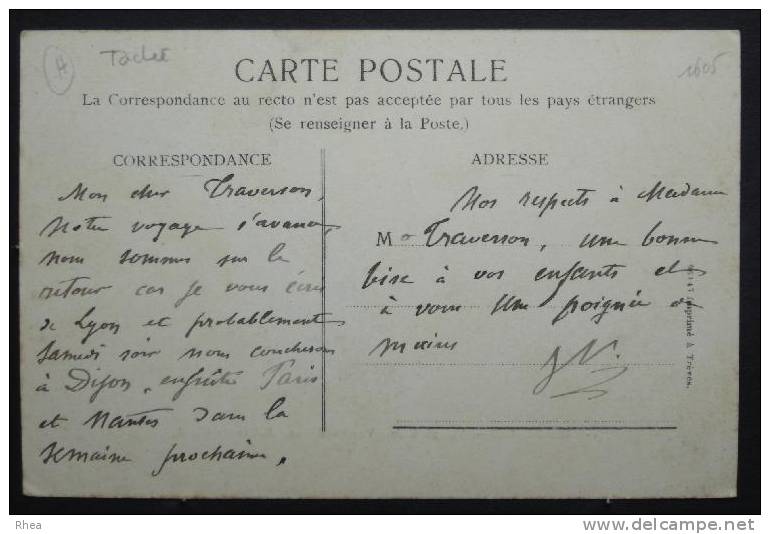 A
1605
CARTE POSTALE
La Correspondance au recto n'est pas acceptée par tous les pays étrangers
(Se renseigner à la Poste.)
CORRESPONDANCE
Mon cher Traverson,
Notre voyage s'avance,
nous sommes sur le
retour car je vous écris
de Lyon et probablement
samedi soir nous coucherons
à Dijon, ensuite Paris
et Nantes dans la
semaine prochaine.
ADRESSE
Nos respects à Madame
M Traverson, une bonne
bise à vos enfants et
à vous une poignée de
mains
Imprimé à Trèves.
Rhea
www.delcampe.net